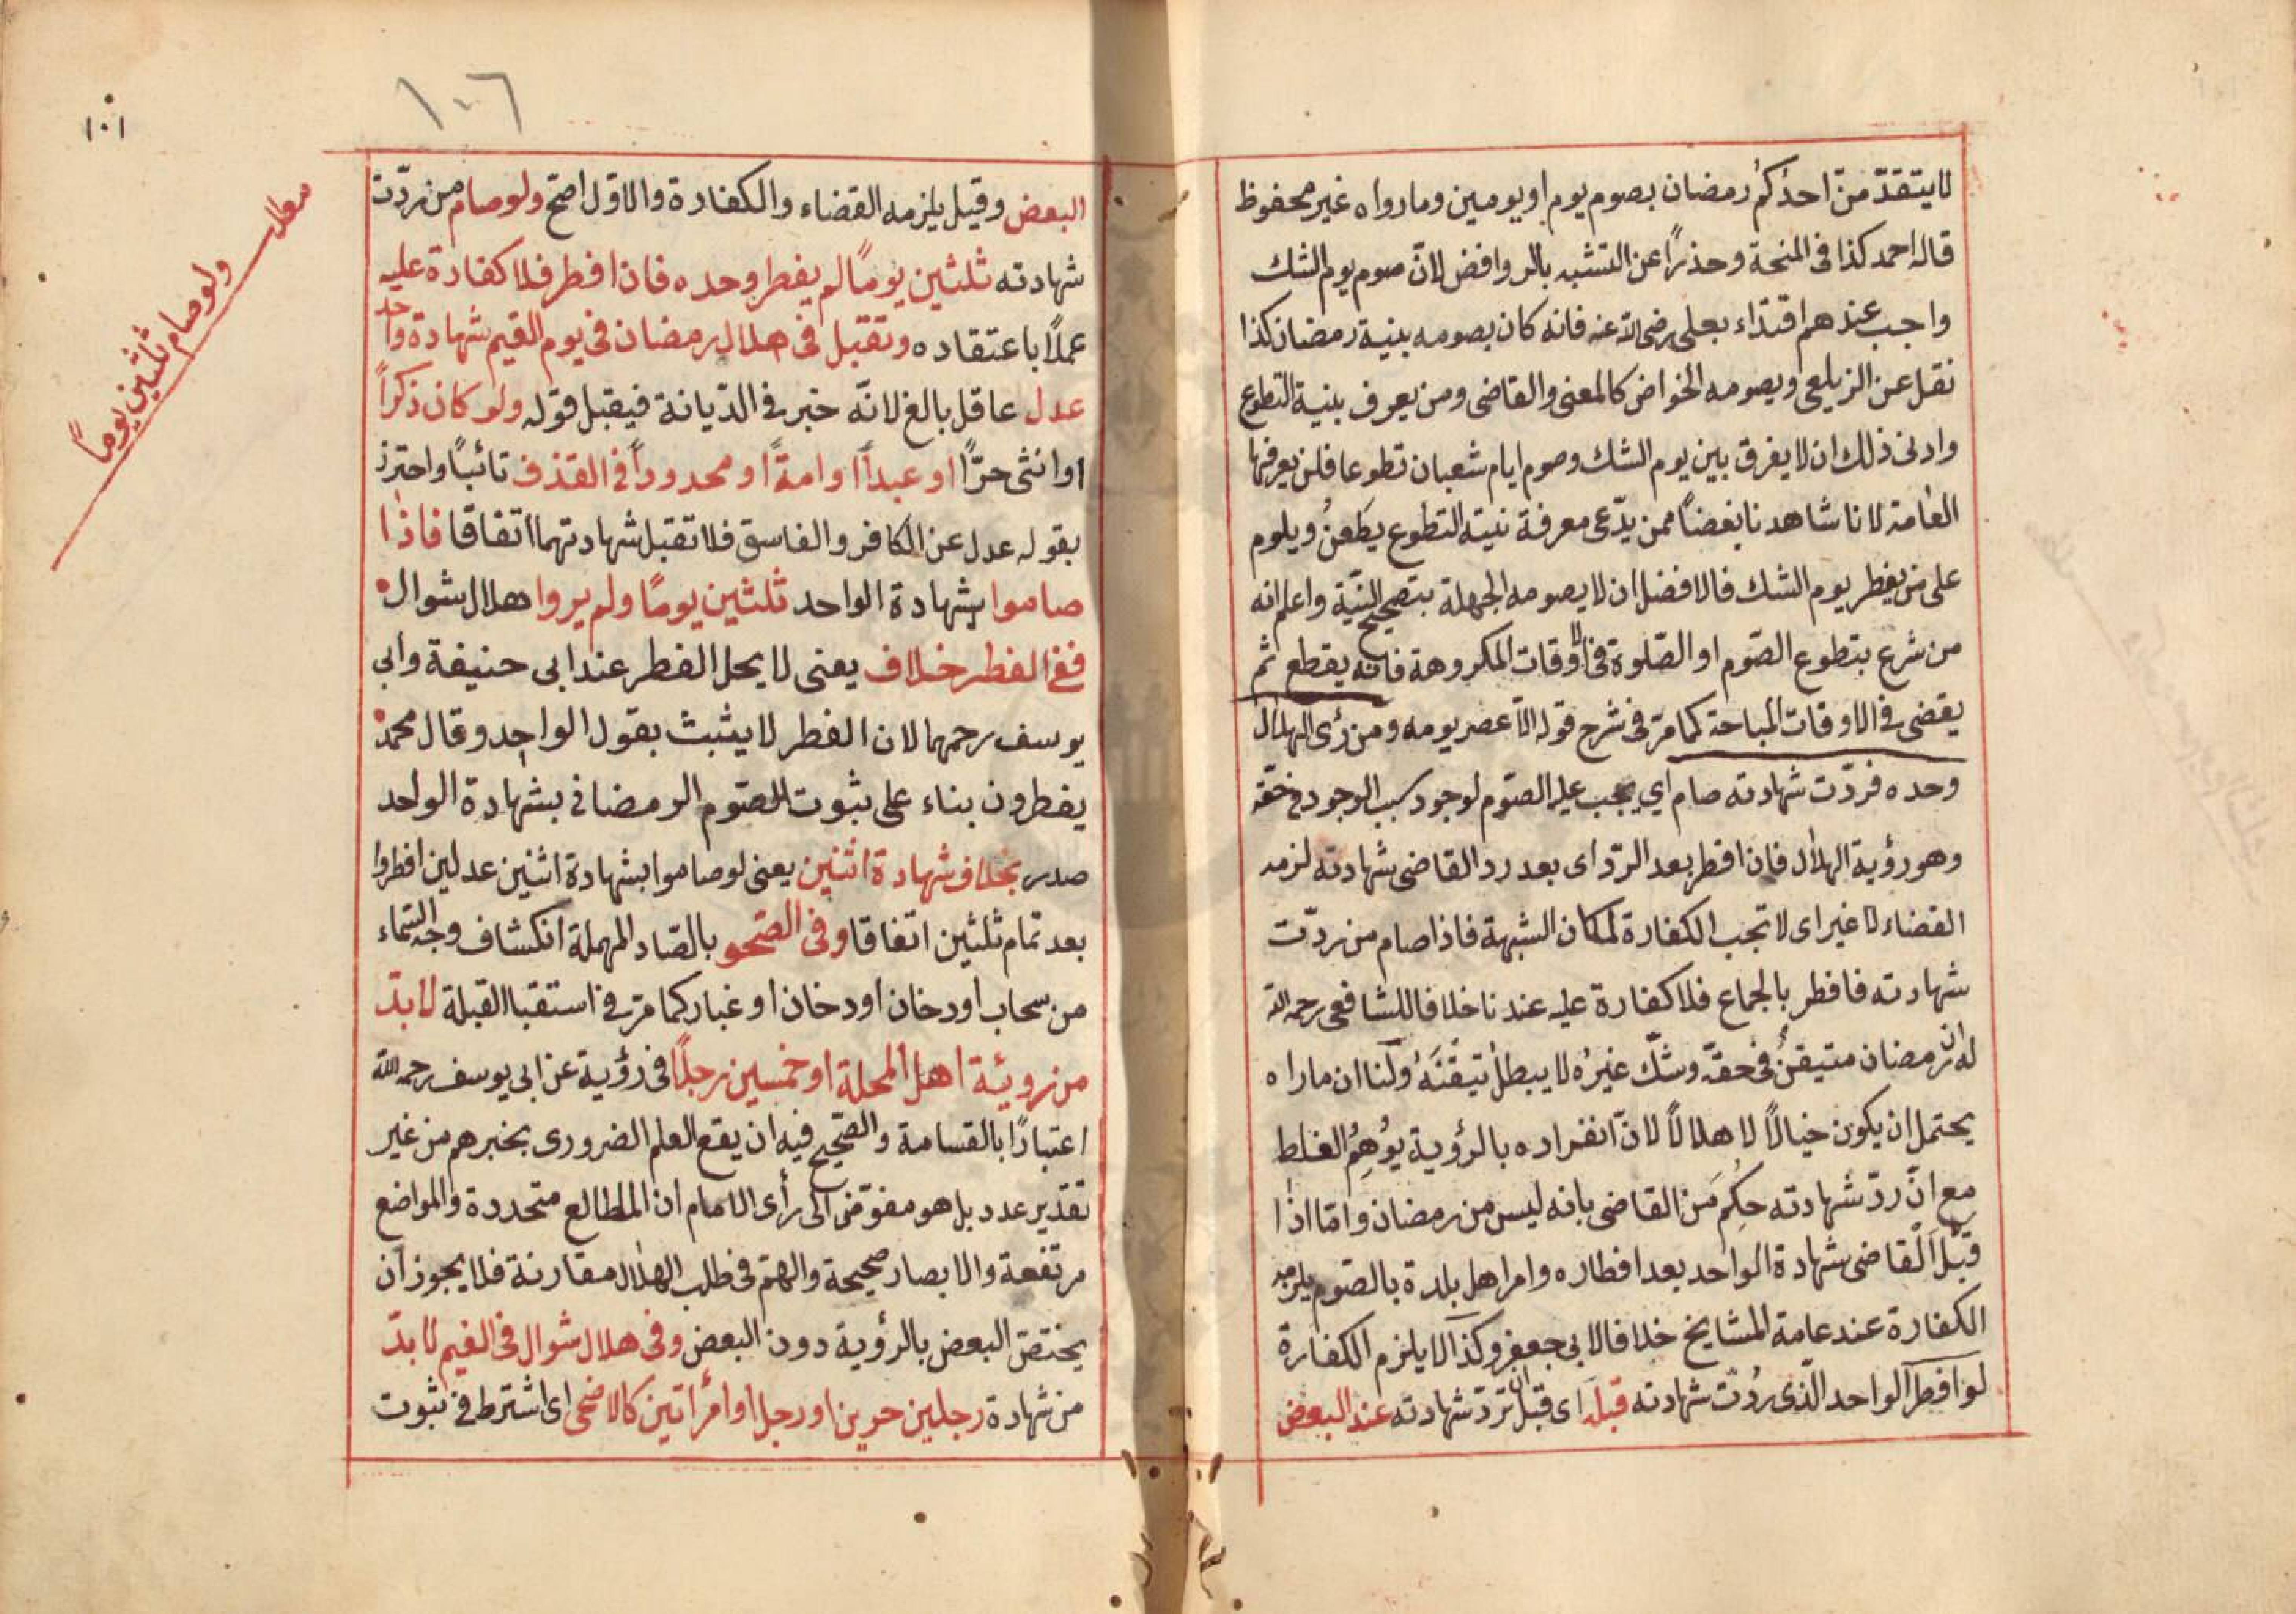 لا يتقدّمنّ احدكُم رمضان بصوم يوم او يومين وما رواه غير محفوظ
قاله احمد كذا في المنحة وحذرًا عن التشبه بالروافض لانّ صوم يوم الشك
واجب عندهم اقتداء بعلى رضى الله عنه فانه كان يصومه بنية رمضان كذا
نقل عن الزيلعى ويصومه الخواص كالمفتى والقاضى ومن يعرف بنية التطوع
وادنى ذلك ان لا يفرق بين يوم الشك وصوم ايام شعبان تطوعا فلن يعرفها
العامة لانا شاهدنا بعضًا ممن يدّعى معرفة نيته التطوع يطعنُ ويلوم
على من يفطر يوم الشك فالافضل ان لا يصومه الجهلة بتصحيح النيّة واعلم انه
من شرع بتطوع الصّوم او الصّلوة في الاوقات المكروهة فانه يقطع ثم
يقضى في الاوقات المباحة كما مرّ في شرح قوله الا عصر يومه ومن رأى الهلال
وحده فردّت شهادته صام اي يجب عليه الصّوم لوجود سبب الوجود في حقّه
وهو رؤية الهلال فان افطر بعد الردّ اى بعد رد القاضى شهادته لزمه
القضاء لا غير اى لا تجب الكفارة لمكان الشبهة فاذا صام من ردّت
شهادته فافطر بالجماع فلا كفارة عليه عندنا خلافا للشافعى رحمه الله
له ان رمضان متيقنٌ في حقّه وشكّ غيرُه لا يبطلُ تيقّنَهُ ولنا ان ماراه
يحتمل ان يكون خيالًا لا هلالًا لانّ انفراده بالرؤية يُوهِمُ الغلط
مع انّ ردّ شهادته حكم من القاضى بانه ليس من رمضان وامّا اذا
قبّل القاضى شهادة الواحد بعد افطاره وامر اهل بلدة بالصّوم يلزمه
الكفارة عند عامة المشايخ خلافا لابى جعفر وكذا لا يلزم الكفارة
لو افطر الواحد الّذى رُدّت شهادته قبله اى قبل ان تردّ شهادته عند البعض
١٠٦
١٠١
البعض وقيل يلزمه القضاء والكفارة والاوّل اصحّ ولو صام من ردّت
شهادته ثلثين يومًا لم يفطر وحده فان افطر فلا كفارة عليه
عملًا باعتقاده وتقبل في هلال رمضان في يوم الغيم شهادة واحد
عدل عاقل بالغ لانّه خبر في الدّيانة فيقبل قوله ولو كان ذكرًا
او انثى حرًّا او عبدًا او امةً او محدودًا في القذف تائبًا واحترز
بقوله عدل عن الكافر والفاسق فلا تقبل شهادتهما اتفاقا فاذا
صاموا بشهادة الواحد ثلثين يومًا ولم يروا هلال شوال
ففى الفطر خلاف يعنى لا يحل الفطر عند ابى حنيفة وابى
يوسف رحمهما لان الفطر لا يثبت بقول الواحد وقال محمد
يفطرون بناء على ثبوت الصّوم الرمضانى بشهادة الواحد
صدر بخلاف شهادة اثنين يعنى لو صاموا بشهادة اثنين عدلين افطروا
بعد تمام ثلثين اتفاقا وفى الصّحو بالصّاد المهملة انكشاف وجه السّماء
من سحاب او دخان او دخان او غبار كما مرّ في استقبا القبلة لا بدّ
من رويئة اهل المحلة او خمسين رجلًا في رؤية عن ابى يوسف رحمه الله
اعتبارًا بالقسامة والصّحيح فيه ان يقع العلم الضرورى بخبرهم من غير
تقدير عدد بل هو مفوّض الى رأى الامام ان المطالع متحددة والمواضع
مرتفعة والابصار صحيحة والهمّة في طلب الهلال مقارنة فلا يجوز ان
يختصّ البعض بالرؤية دون البعض وفى هلال شوال في الغيم لا بدّ
من شهادة رجلين حرين او رجل او امرأتين كالاضحى اى اشترط في ثبوت
مطلب
ولو صام ثلثين يومًا